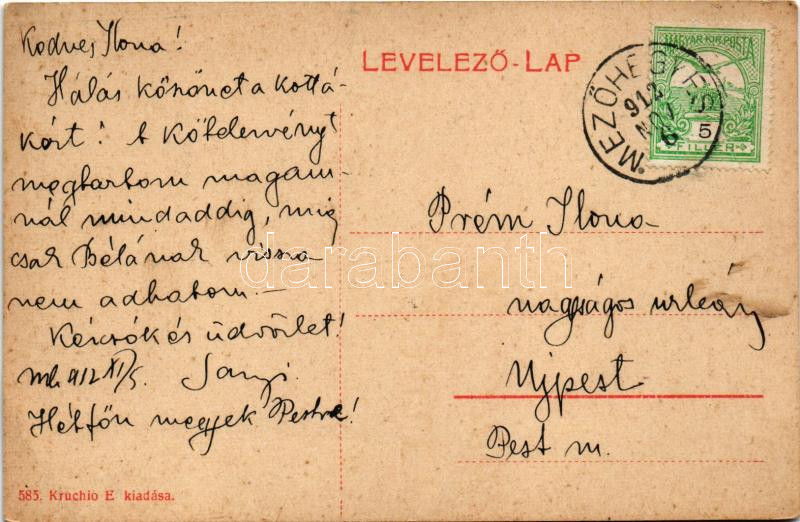 Kedves Ilona!
Hálás köszönet a kottá-
kért! A kötelezvényt
megtartom magam-
nál mindaddig, míg
csak Bélának vissza
nem adhatom. —
Kézcsók és üdvözlet!
Mh 912 XI/5. Sanyi.
Hétfőn megyek Pestre!
585. Kruchio E kiadása.
LEVELEZŐ-LAP
MAGYAR KIR. POSTA
5
FILLÉR
MEZŐHEGYES
912
NOV
6
Prém Ilona
nagyságos urleány
Ujpest
Pest m.
darabanth